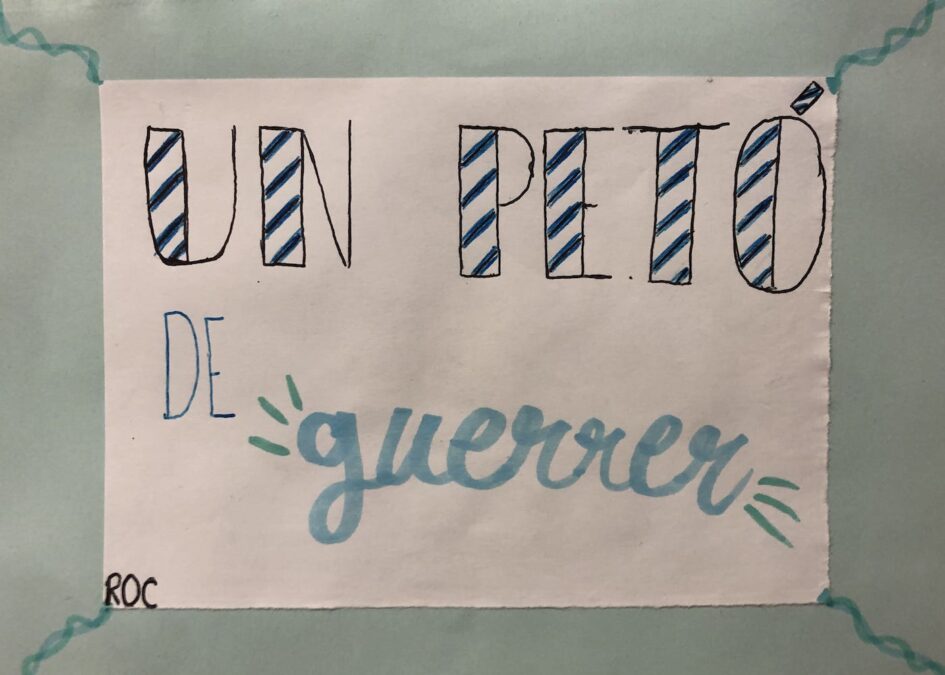 UN PETÓ
DE
guerrer
ROC